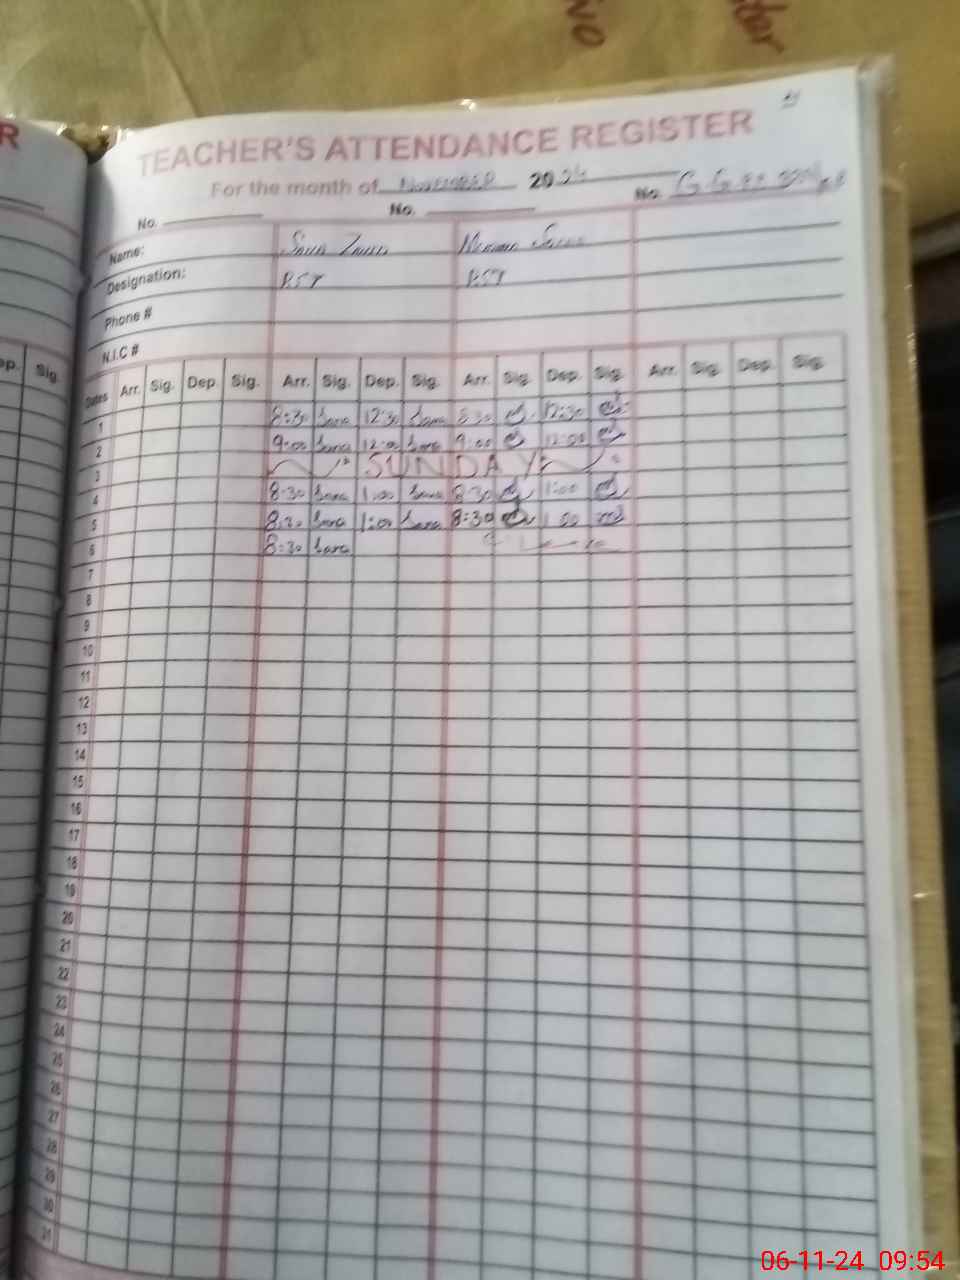 ive
ster
R
TEACHER'S ATTENDANCE REGISTER
For the month of November 2024
No. No. No.
Name:
Designation: PST PST
Phone #
N.I.C #
ep. Sig.
Dates Arr. Sig. Dep. Sig. Arr. Sig. Dep. Sig. Arr. Sig. Dep. Sig. Arr. Sig. Dep. Sig.
1 8:30 Sana 12:30 Sana 8:30 12:30
2 9:00 Sana 12:00 Sana 9:00 12:00
3 SUNDAY
4 8:30 Sana 1:00 Sana 8:30 1:00
5 8:30 Sana 1:00 Sana 8:30 1:00
6 8:30 Sana
7
8
9
10
11
12
13
14
15
16
17
18
19
20
21
22
23
24
25
26
27
28
29
30
31
06-11-24 09:54